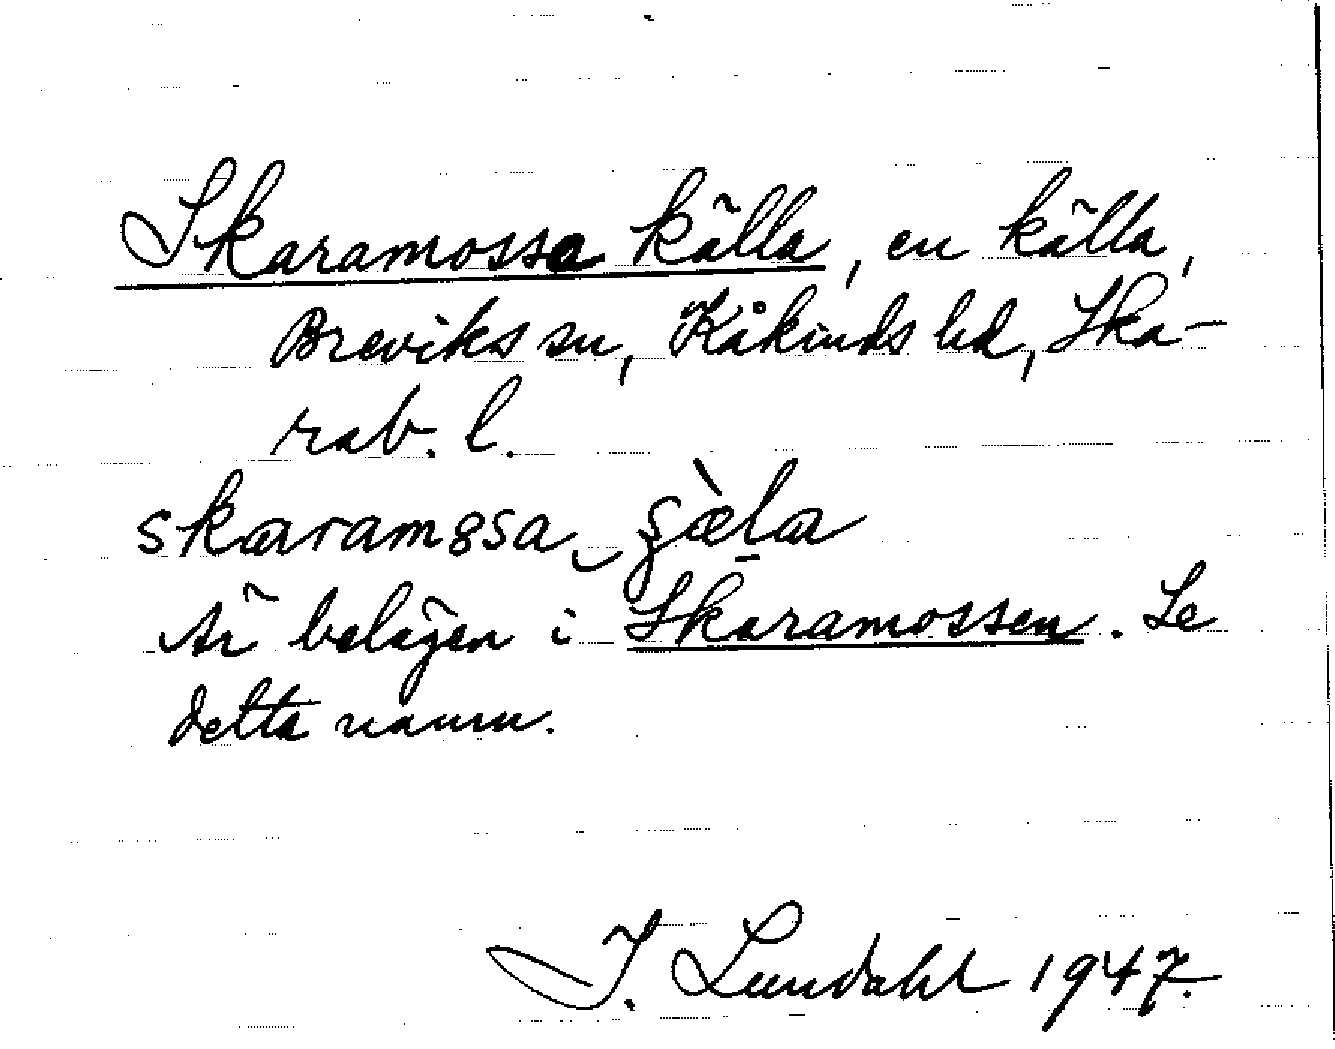 Skaramossa källa, en källa,
Breviks sn, Kåkinds hd, Ska-
rab. l.
skaramȣsa ‿ ʂæ̀l̠a
Är belägen i Skaramossen. Se
detta namn.
I. Lundahl 1947.